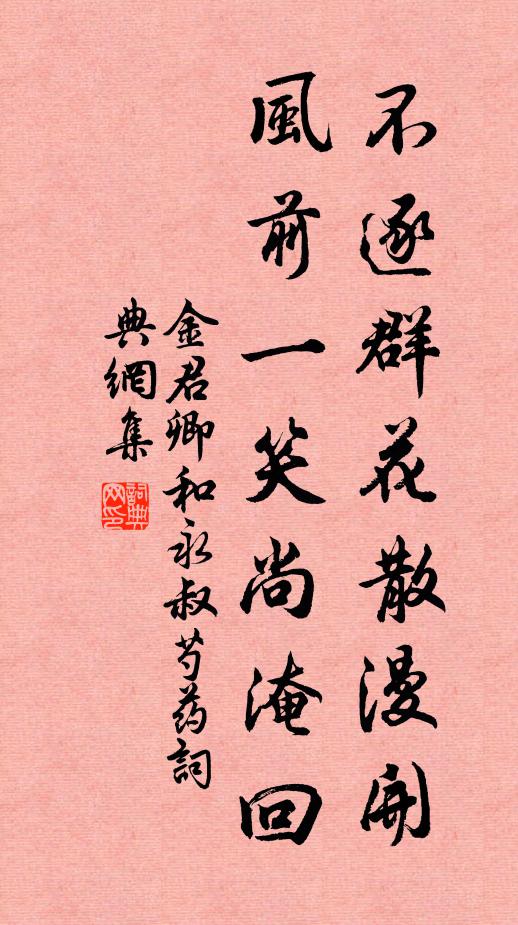 不逐群花散漫開
風前一笑尚淹回
金君卿和永叔芍药詞
典網集
詞典
网印